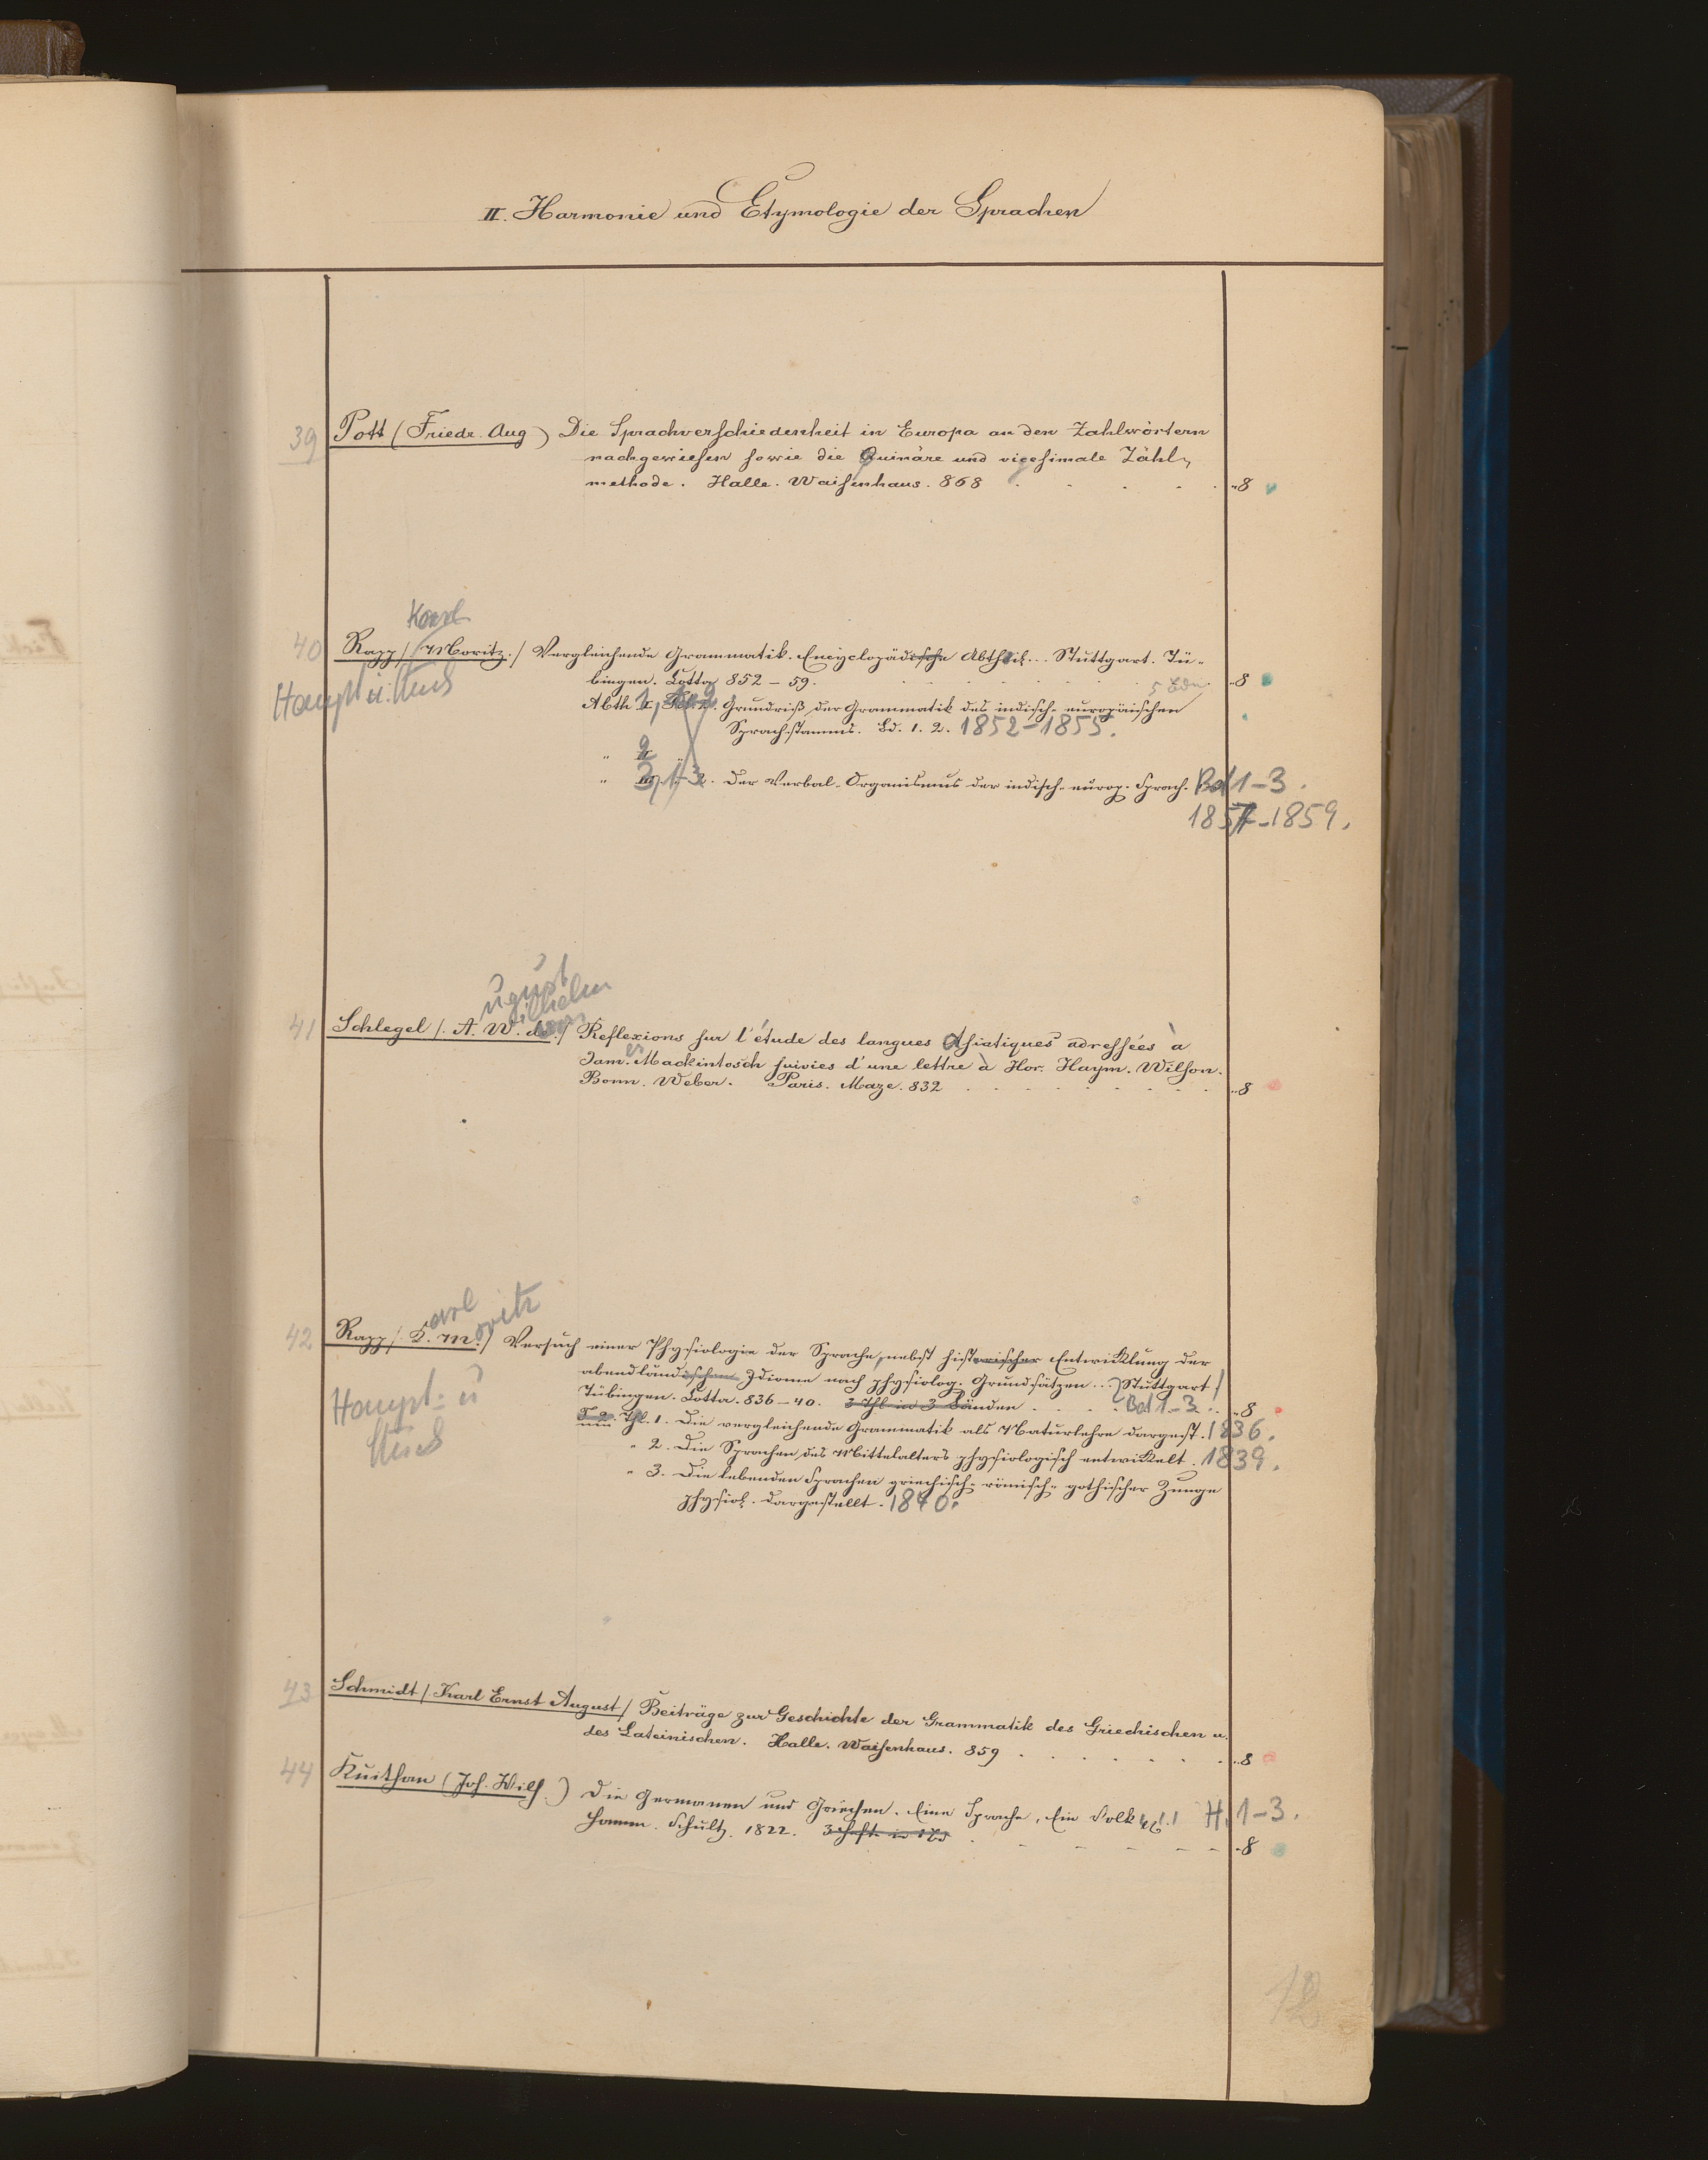 II. Harmonie und Etymologie der Sprachen
39 Pott (Friedr. Aug) Die Sprachverschiedenheit in Europa an den Zahlwörtern
nachgewiesen sowie die Quinäre und vigesimale Zähl-
methode. Halle. Waisenhaus. 868 . . . . . "8
Karl
40 Rapp /Moritz./ Vergleichende Grammatik. Encyclopädische Abtheil... Stuttgart. Tü-
Haupt u.
bingen. Cotta 852-59. "8
5 Bde
Abth 1, Grundriß der Grammatik des indisch-europäischen
Sprachstamms. Bd. 1. 2. 1852-1855.
" 2
" 3, 1-3. Der Verbal-Organismus der indisch-europ. Sprach. Bd 1-3.
1857-1859.
ugust
ilhelm
von
41 Schlegel /. A. W. de./ Reflexions sur l'étude des langues Asiatiques adressées à
James Mackintosch suivies d'une lettre à Hor. Haym. Wilson.
Bonn. Weber. Paris. Maze. 832 "8
arl oritz
42 Rapp /. K. M./ Versuch einer Physiologie der Sprache, nebst historischer Entwicklung der
Haupt- u
abendländischen Idiome nach physiolog. Grundsätzen... Stuttgart/
Tübingen. Cotta. 836-40. 3 Thl in 3 Bänden . . . Bd 1-3. "8
Thl. 1. Die vergleichende Grammatik als Naturlehre dargest. 1836.
" 2. Die Sprachen des Mittelalters physiologisch entwickelt. 1839.
" 3. Die lebenden Sprachen griechisch-römisch-gothischer Zunge
physiol. dargestellt. 1840.
43 Schmidt /Karl Ernst August/ Beiträge zur Geschichte der Grammatik des Griechischen u.
des Lateinischen. Halle. Waisenhaus. 859 . . . . . "8
44 Kuithan (Joh. Wilh.) Die Germanen und Griechen. Eine Sprache, Ein Volk H. 1-3.
Hamm. Schultz. 1822. 3 Heft in 1 Bd - - - - "8
12